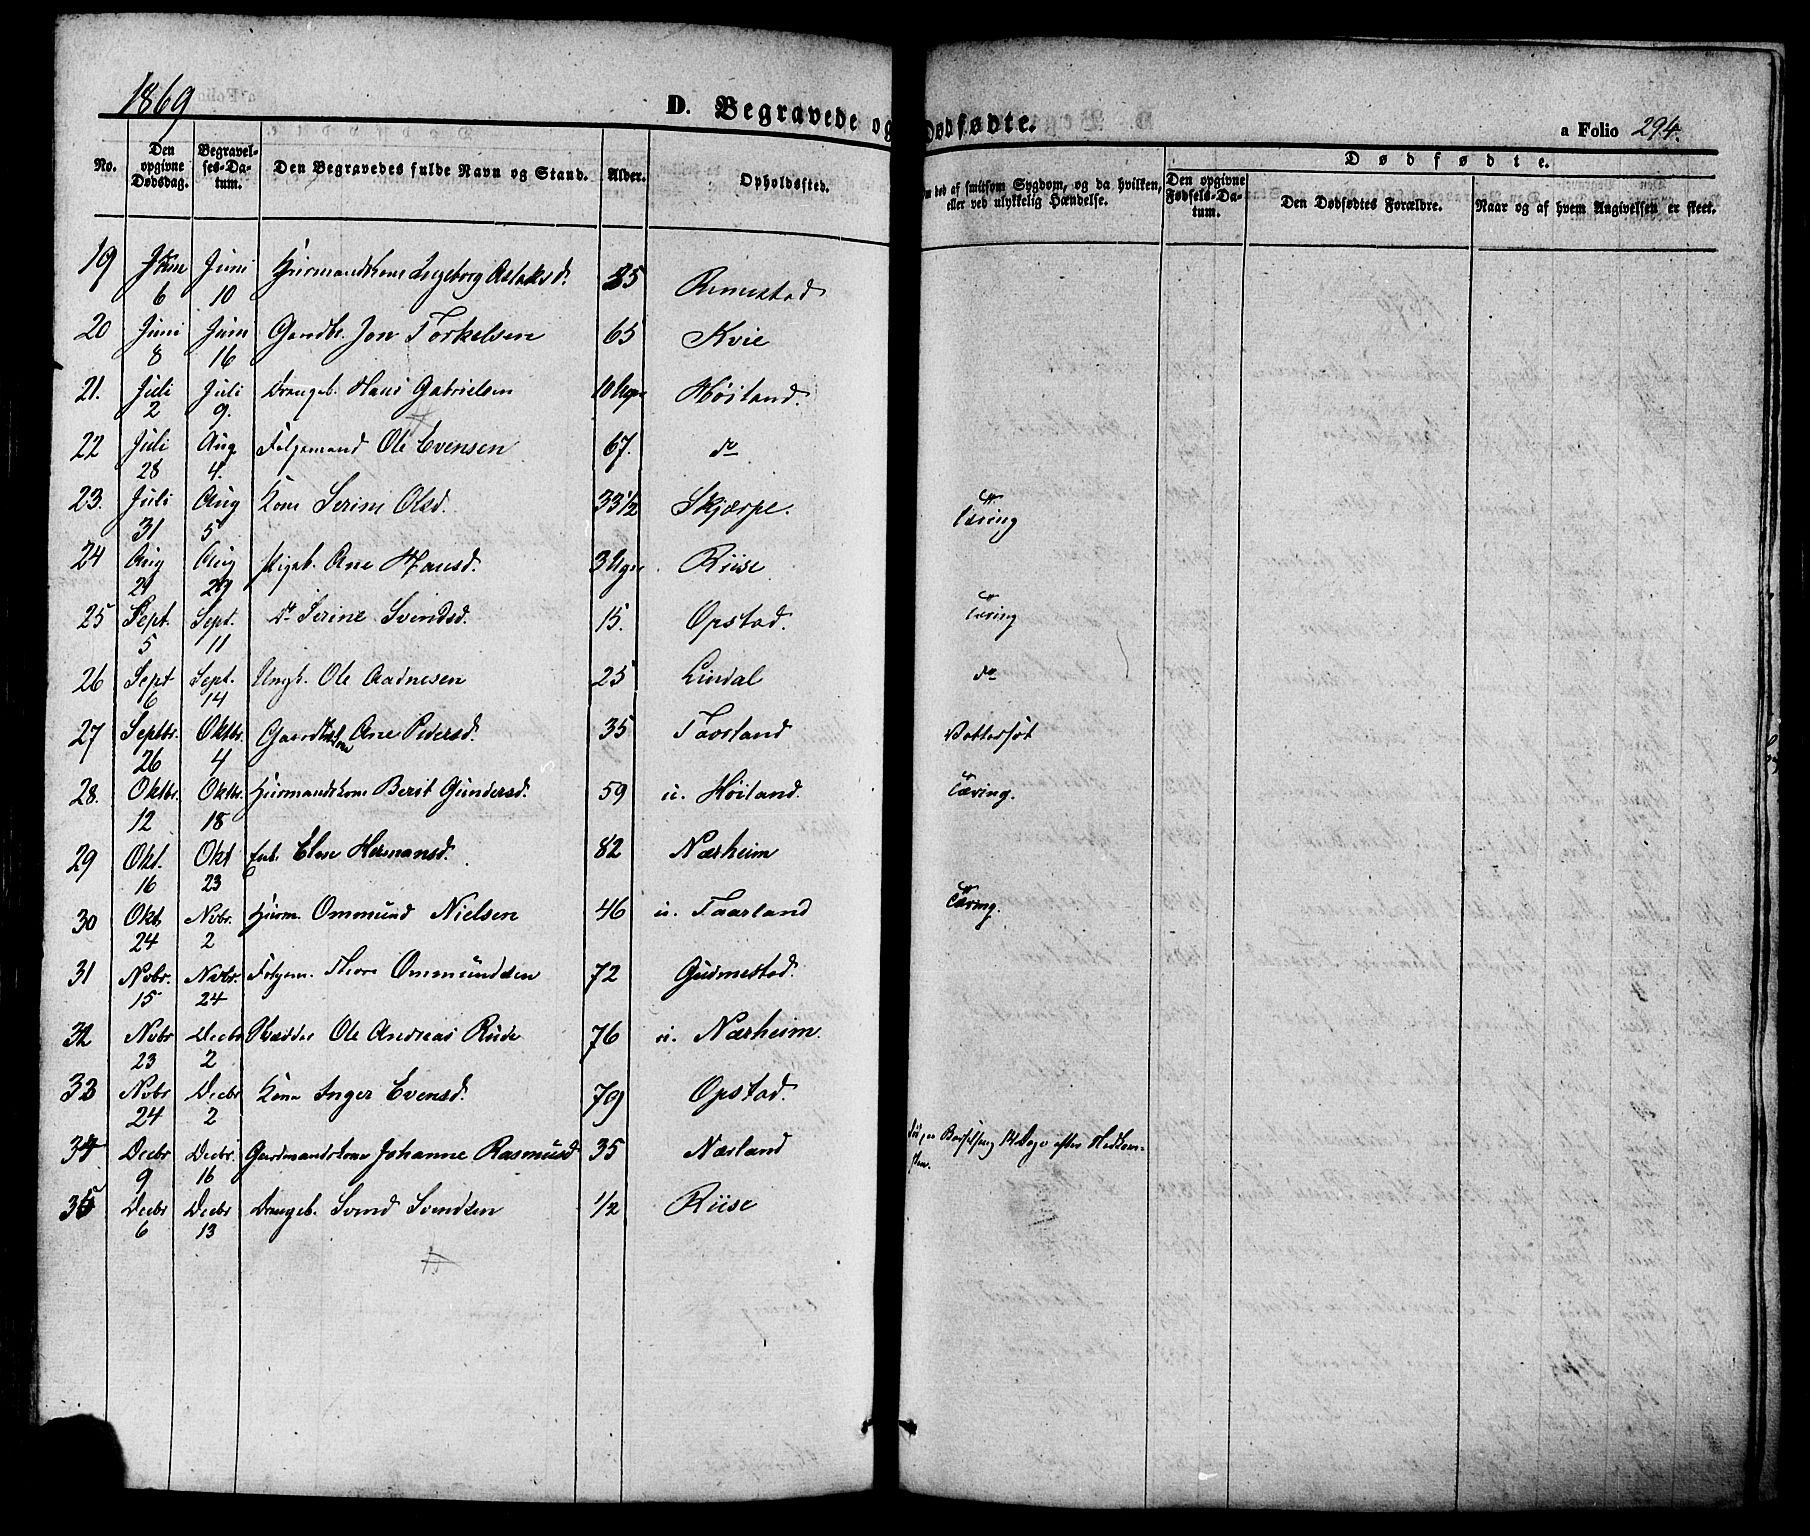 1869
D. Begravede og Dødfødte.
a Folio 294.
No. Den opgivne Dødsdag. Begravelses-Datum. Den Begravedes fulde Navn og Stand. Alder. Opholdssted. om død af smitsom Sygdom, og da hvilken, eller ved ulykkelig Hændelse. Dødfødte. Den opgivne Fødsels-Datum. Den Dødfødtes Forældre. Naar og af hvem Angivelsen er skeet.
19 Juni 6 Juni 10 Huusmandskone Ingeborg Aslaksd. 85 Rimestad
20 Juni 8 Juni 16 Gaardbr. Jon Torkelsen 65 Kvie
21. Juli 2 Juli 9. Drengeb. Hans Gabrielsen 10 Uger Høiland.
22 Juli 28 Aug 4. Folgemand Ole Evensen 67. do
23. Juli 31 Aug 5 Kone Serine Olsd. 33 1/2 Skjærpe. Tæring
24 Aug 21 Aug 29 Pigeb. Ane Hansd. 3 Uger Riise
25 Sept. 5 Sept. 11 Do Serine Svendsd. 15. Opstad. Tæring
26 Sept 6 Sept. 14 Ungk. Ole Aadnesen 25 Lindal do
27 Septbr. 26 Oktbr. 4 Gaardbr kone Ane Pedersd. 35 Tavsland Vattersot
28. Oktbr. 12 Oktbr. 18 Huusmandskone Berit Gundersd. 59 u. Høiland. Tæring.
29 Okt. 16 Okt 23 Enk. Elen Hermansd. 82 Nærheim
30 Okt. 24 Nvbr. 2 Huusm. Ommund Nielsen 46 u. Taarland Tæring.
31 Nvbr. 15 Nvbr. 24 Folgem. Thore Ommundsen 72 Gudmestad.
32 Nvbr 23 Decbr 2 Skrædder Ole Andreas Rude 76 u. Nærheim.
33 Nvbr 24 Decbr 2 Kone Inger Evensd. 79 Opstad.
34 Decbr 9 Decbr. 16 Gaardmandskone Johanne Rasmusd 35 Nærland Barselseng 14 Dage efter Nedkomsten.
35 Decbr 6 Decbr 13 Drengeb. Svend Svendsen 1/2 Riise